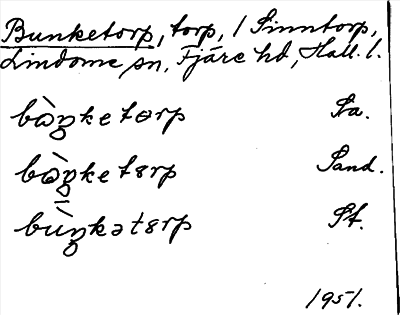 Bunketorp, torp, / Sinntorp,
Lindome sn, Fjäre hd, Hall. l.
bòŋketorp Sa.
bòŋketɘrp Sand.
bùŋkətɘrp St.
1951.